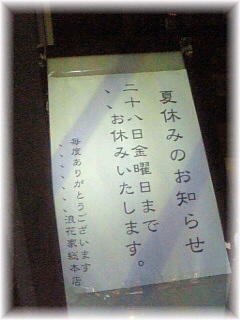 夏休みのお知らせ
二十八日金曜日まで
、、お休みいたします。
毎度ありがとうございます
、、、、、、浪花家総本店